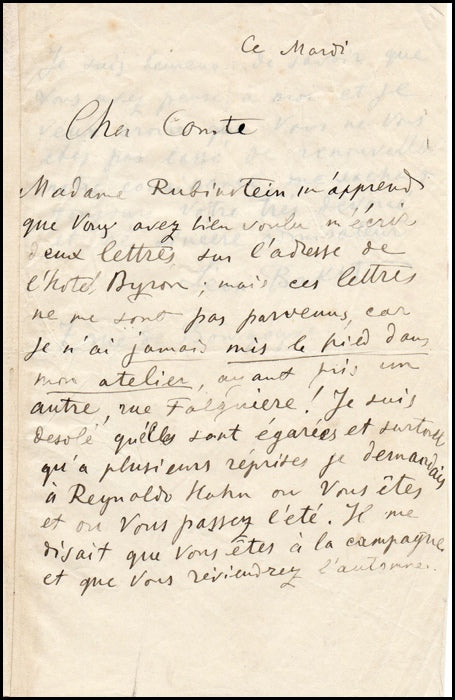 Ce Mardi
Cher Comte
Madame Rubinstein m'apprend
que Vous avez bien voulu m'écrir
deux lettres sur l'adresse de
l'hotel Byron ; mais ces lettres
ne me sont pas parvenus, car
je n'ai jamais mis le pied dans
mon atelier, ayant pris un
autre, rue Falguiere ! Je suis
desolé qu'elles sont égarées et surtout
qu'a plusieurs réprises je demandais
à Reynaldo Hahn ou Vous êtes
et ou Vous passez l'été. Il me
disait que Vous êtes à la campagne
et que Vous reviendrez l'automne.